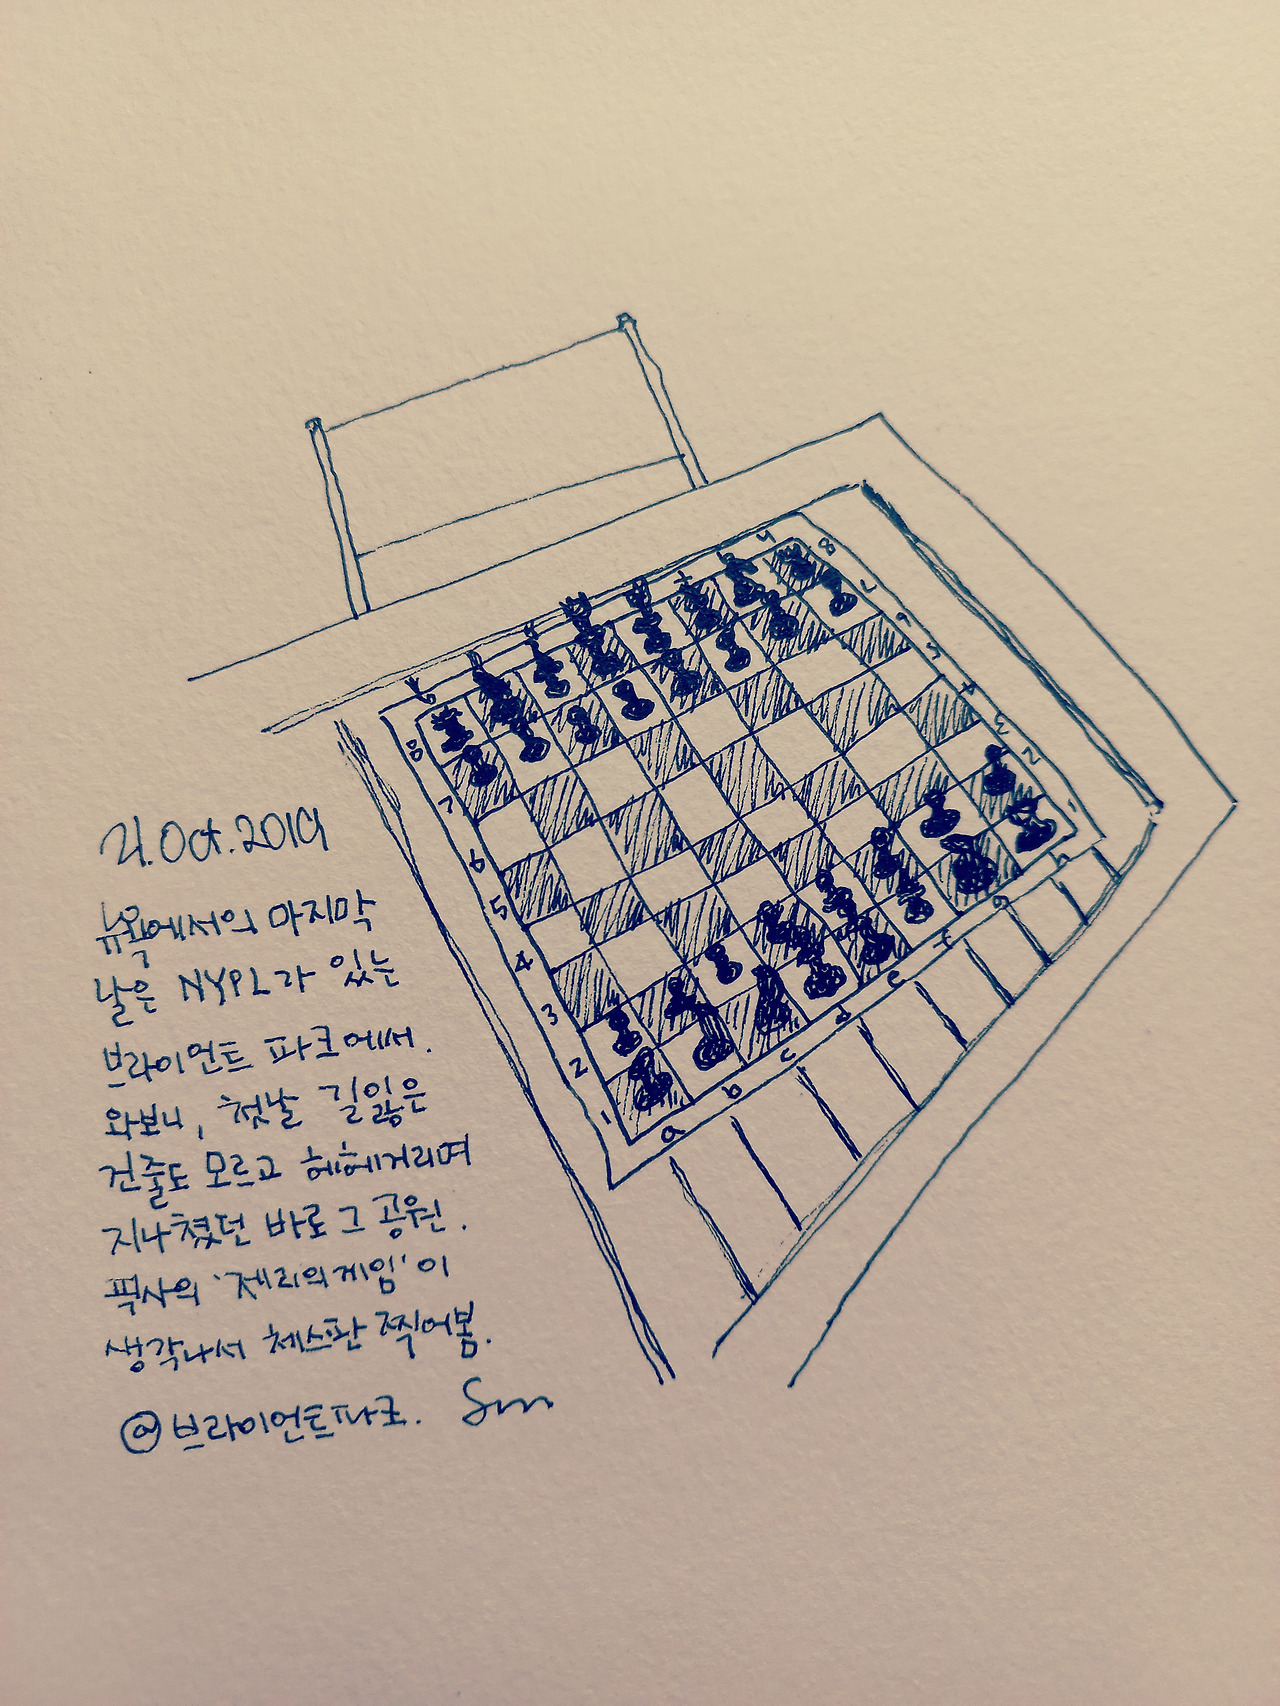 21.Oct.2019
뉴욕에서의 마지막
날은 NYPL가 있는
브라이언트 파크에서.
와보니, 첫날 길잃은
건줄도 모르고 헤헤거리며
지나쳤던 바로 그 공원.
픽사의 '제리의게임'이
생각나서 체스판 찍어봄.
@브라이언트파크. Sm
8
7
6
5
4
3
2
1
a b c d e f g h
8
7
6
5
4
3
2
1